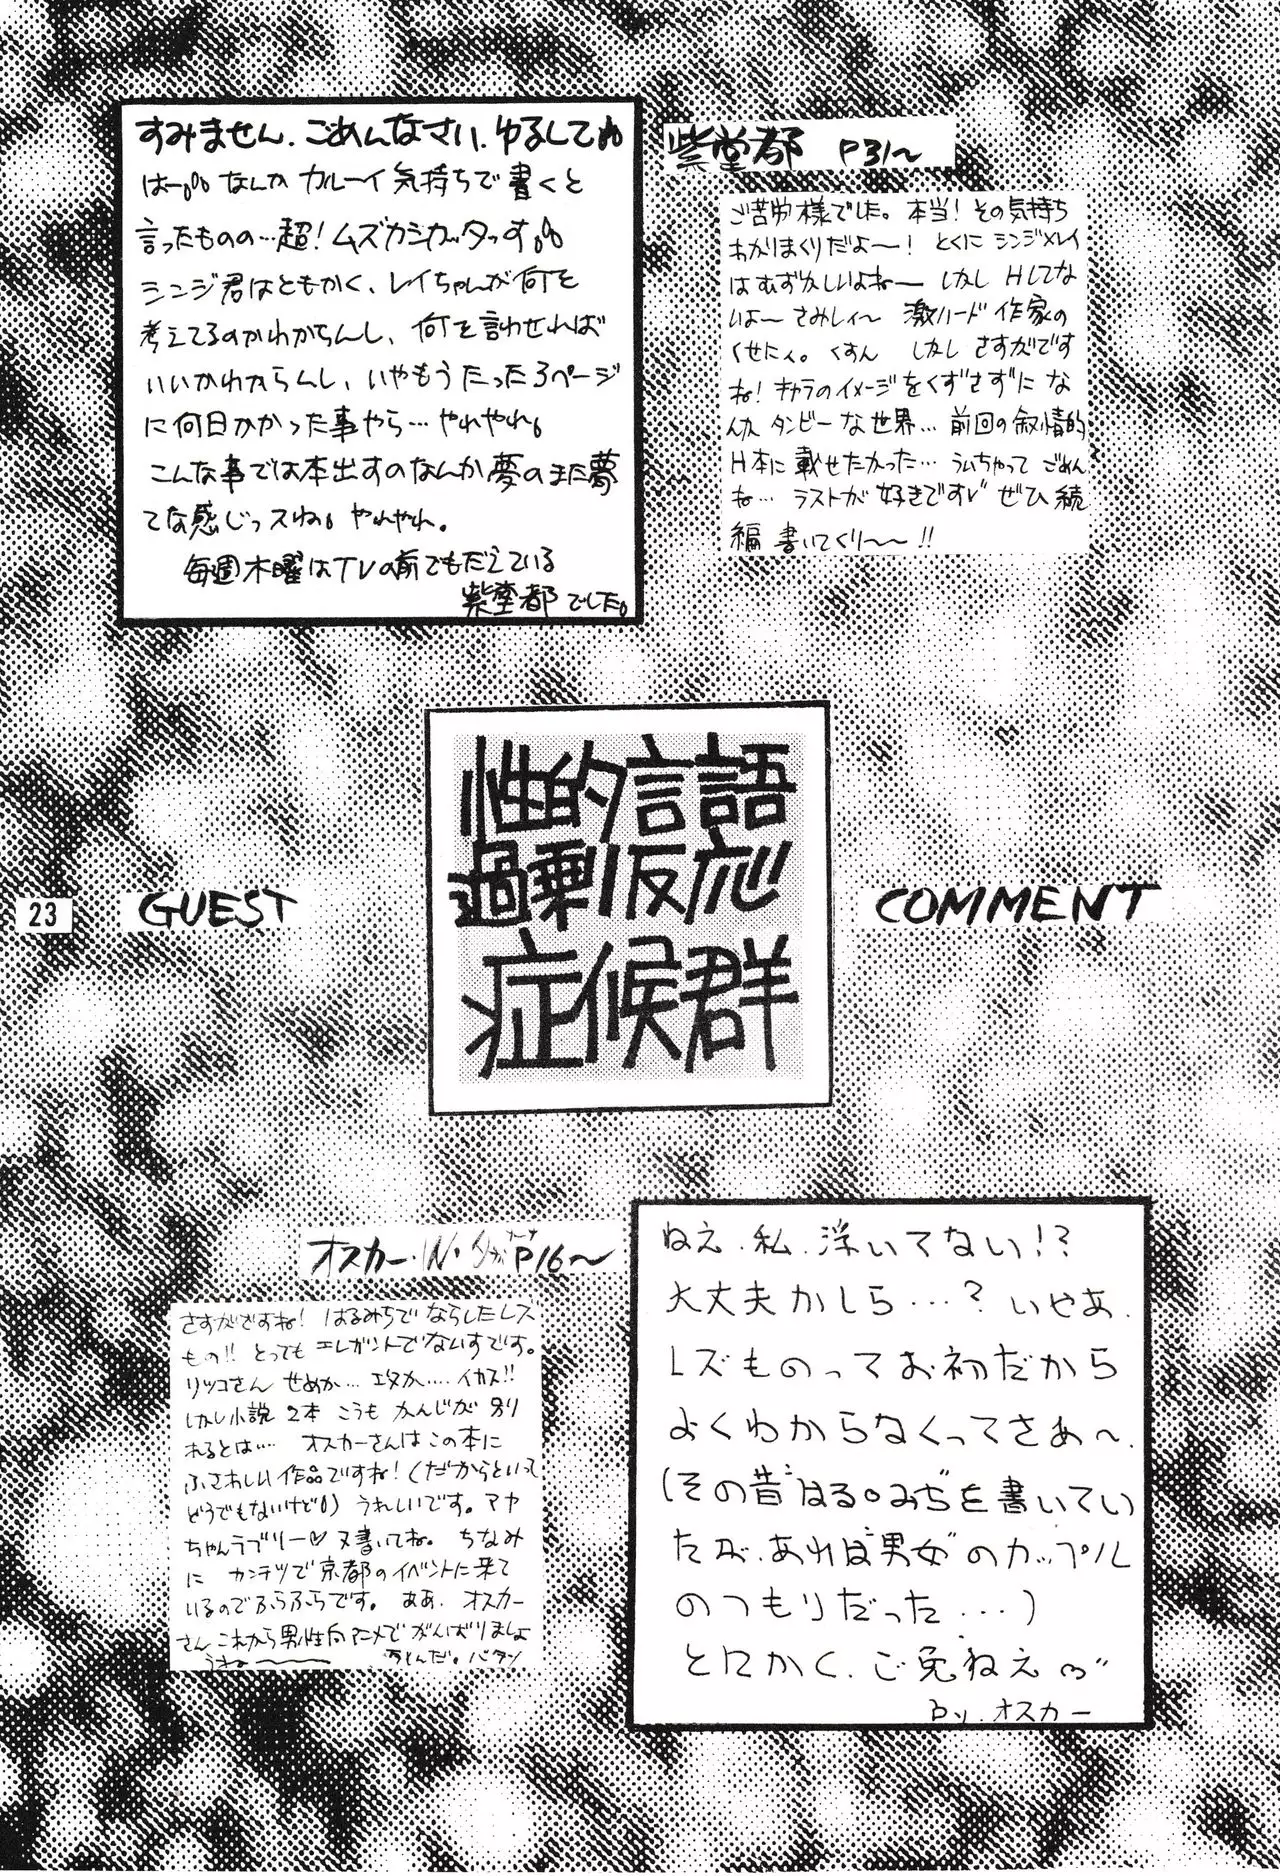 すみません、ごめんなさい、ゆるしてね
はー。なんかカルーイ気持ちで書くと
言ったものの…超!ムズカシカッタっす。
シンジ君はともかく、レイちゃんが何を
考えてるのかわからんし、何を言わせれば
いいかわからんし、いやもうたった3ページ
に何日かかった事やら…やれやれ。
こんな事では本出すのなんか夢のまた夢
てな感じっスね。やれやれ。
毎週木曜はTVの前でもだえている
紫堂都でした。
紫堂都 P31〜
ご苦労様でした。本当!その気持ち
わかりまくりだよ〜!とくにシンジ×レイ
はむずかしいよねー しかしHしてな
いよ〜さみしィ〜 激ハード作家の
くせにィ。くすん しかしさすがです
ね!キャラのイメージをくずさずにな
んかタンビーな世界…前回の叙情的
H本に載せたかった…ういちゃってごめん
ね…ラストが好きですv ぜひ続
編書いてくり〜〜!!
性的言語
過剰反応
症候群
23
GUEST
COMMENT
オスカー・W・ P16〜
さすがですね! はるみちでならしたレズ
もの!!とってもエレガントでないすです。
リツコさんせめか…エタか…イカス!!
しかし小説2本こうもかんじが別
れるとは…オスカーさんはこの本に
ふさわしい作品ですね!(だからといって
どうでもないけど)うれしいです。マヤ
ちゃんラブリー♡又書いてね。ちなみ
にカンテツで京都のイベントに来て
いるのでふらふらです。ああ、オスカー
さんこれから男性向アニメでがんばりましょ
うねー 書とんだ。バタン
ねえ、私、浮いてない!?
大丈夫かしら…?いやあ、
レズものってお初だから
よくわからなくってさあ〜、
(その昔"はる。みち"を書いてい
たが、あれは"男女"のカップル
のつもりだった…)
とにかく、ご免ねえ
by.オスカー